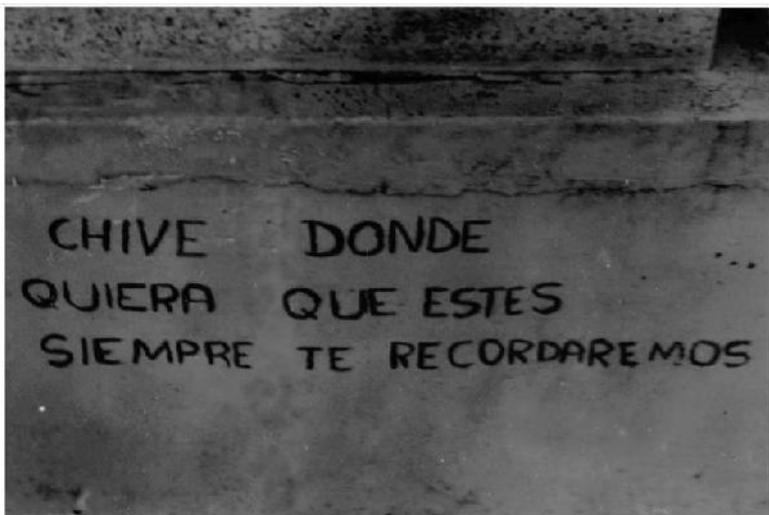 CHIVE DONDE
QUIERA QUE ESTES
SIEMPRE TE RECORDAREMOS